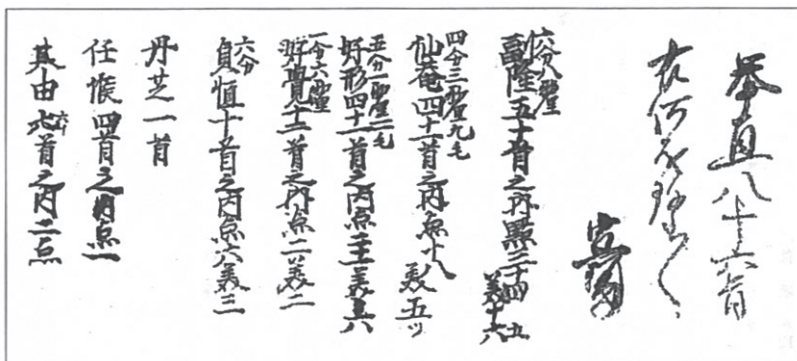 挙直八十六首
右何も
六分八厘
高陸五十首之内點三十四 五
美十六
四分三厘九毛
仙菴四十一首之内点十八
美五ツ
五分一厘二毛
好形四十一首之内点二十一美八
一分六厘
好覚十二首之内点二美二
六分
貞恒十首之内点六美三
丹芝一首
任悵四首之内点一
其由六首之内二点